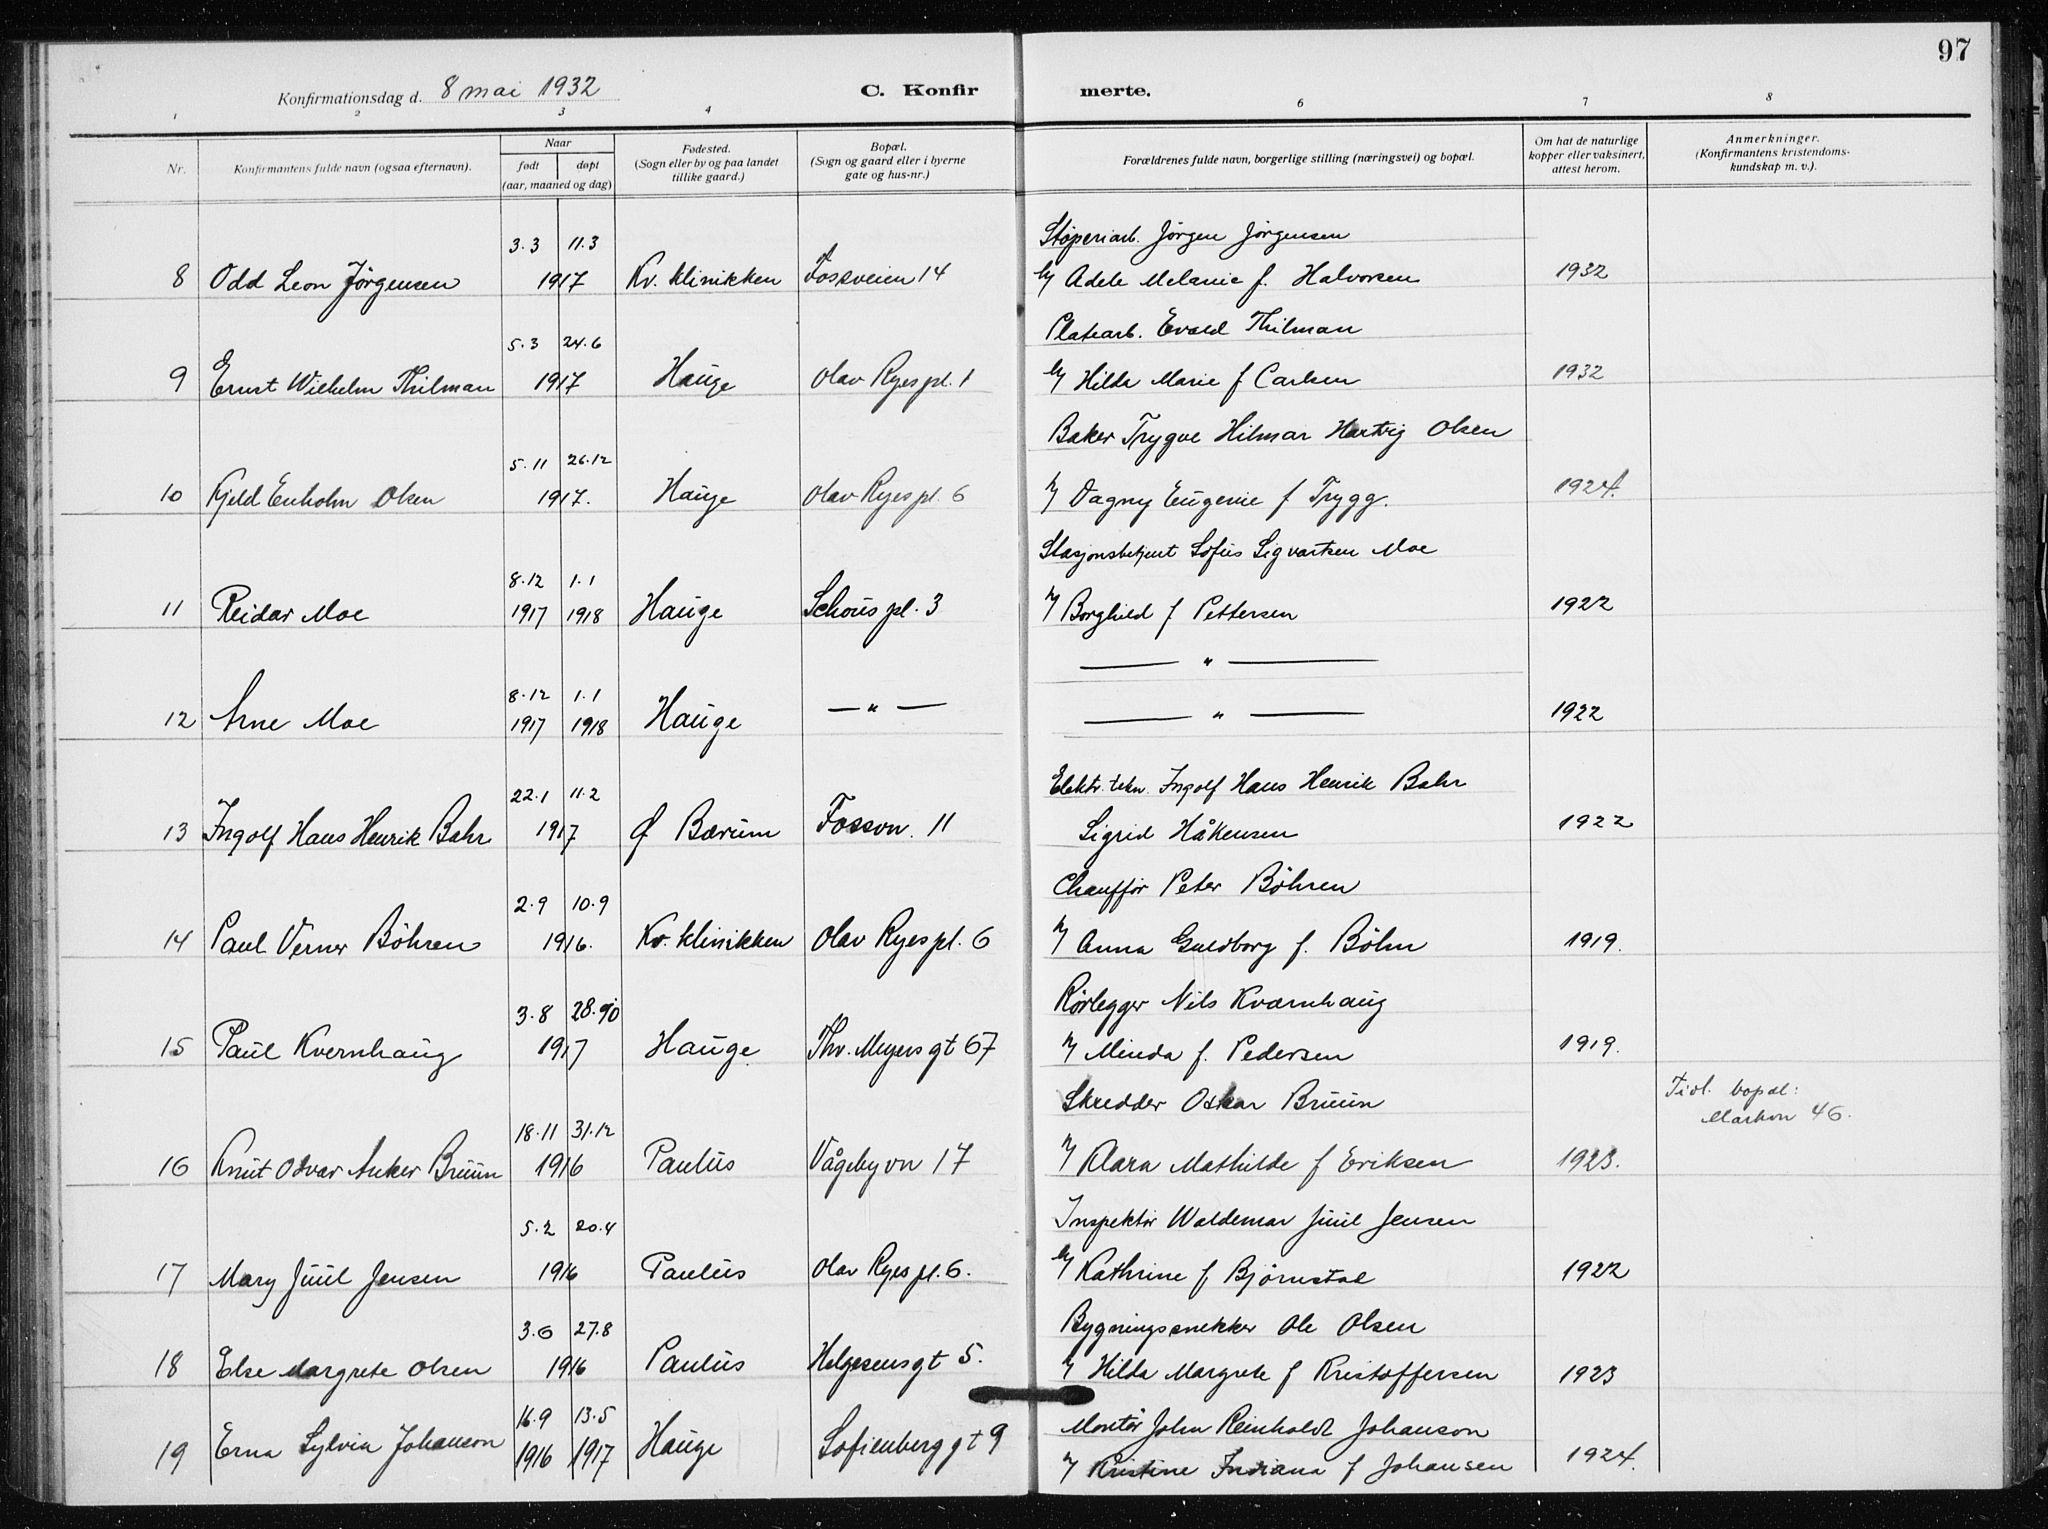 97
Konfirmationsdag d. 8 mai 1932
C. Konfir merte.
1 2 3 4 6 7 8
Nr. Konfirmantens fulde navn (ogsaa efternavn). Naar født døpt (aar, maaned og dag) Fødested. (Sogn eller by og paa landet tillike gaard.) Bopæl. (Sogn og gaard eller i byerne gate og hus-nr.) Forældrenes fulde navn, borgerlige stilling (næringsvei) og bopæl. Om hat de naturlige kopper eller vaksinert, attest herom. Anmerkninger. (Konfirmantens kristendoms-kundskap m. v.).
3.3 11.3 Støperiarb. Jørgen Jørgensen
8 Odd Leon Jørgensen 1917 Kv. klinikken Fossveien 14 Adele Melanie f. Halvorsen 1932
5.3 24.6 Platearb. Evald Thilman
9 Ernst Wilhelm Thilman 1917 Hauge Olav Ryes pl. 1 Hilda Marie f Carlsen 1932
5.11 26.12 Baker Trygve Hilmar Hartvig Olsen
10 Kjeld Enholm Olsen 1917. Hauge Olav Ryes pl. 6 Dagny Eugenie f Trygg. 1924.
8.12 1.1 Stasjonsbetjent Sofus Sigvartsen Moe
11 Reidar Moe 1917 1918 Hauge Schous pl. 3 Borghild f Pettersen 1922
8.12 1.1 — " —
12 Arne Moe 1917 1918 Hauge — " — — " — 1922
22.1 11.2 Elektr. tekn. Ingolf Hans Henrik Bahr
13 Ingolf Hans Henrik Bahr 1917 Ø Bærum Fossvn. 11 Sigrid Håkensen 1922
2.9 10.9 Chauffør Peter Böhren
14 Paul Verner Böhren 1916. Kv. klinikken Olav Ryes pl. 6 Anna Guldborg f. Böhn 1919.
3.8 28.10 Rørlegger Nils Kværnhaug
15 Paul Kvernhaug 1917 Hauge Thv. Meyers gt 67 Minda f. Pedersen 1919.
18.11 31.12 Skredder Oskar Bruun Tidl. bopæl:
Markvn 46.
16 Knut Odvar Anker Bruun 1916 Paulus Vågebyvn 17 Klara Mathilde f Eriksen 1923.
5.2 20.4 Inspektør Waldemar Juul Jensen
17 Mary Juul Jensen 1916 Paulus Olav Ryes pl. 6. Kathrine f Bjørnstad 1922
3.6 27.8 Bygningssnekker Ole Olsen
18 Else Margrete Olsen 1916 Paulus Helgesens gt 5. Hilda Margrete f Kristoffersen 1923
16.9 13.5 Montør John Reinholdt Johanson
19 Erna Sylvia Johanson 1916 1917 Hauge Sofienberg gt 9 Kristine Indiana f Johansen 1924.